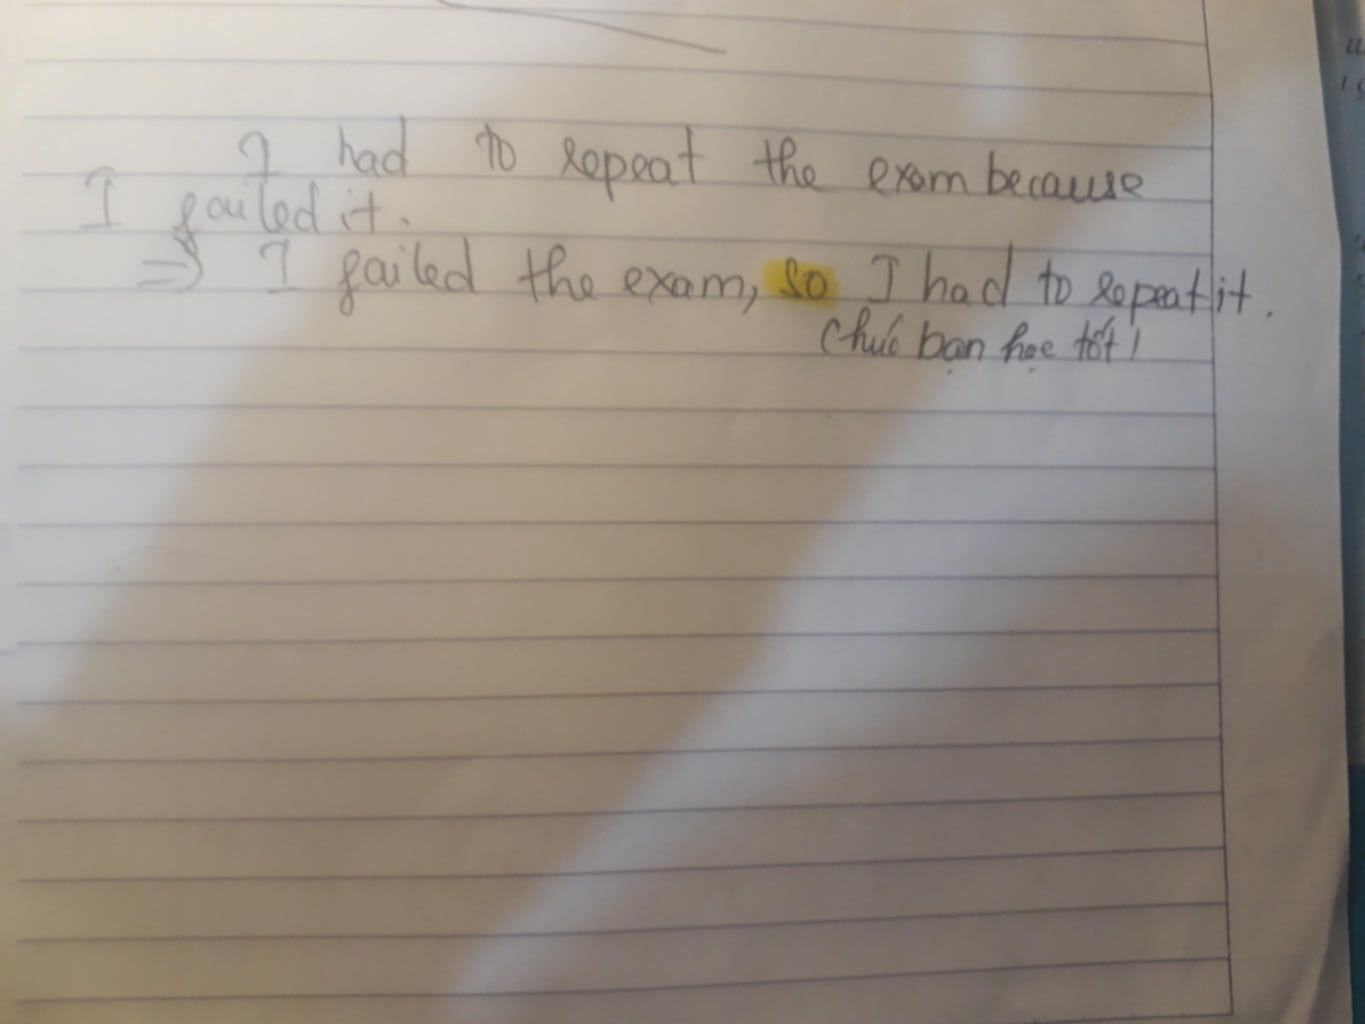 I had to repeat the exam because
I failed it.
=> I failed the exam, so I had to repeat it.
Chúc bạn học tốt!